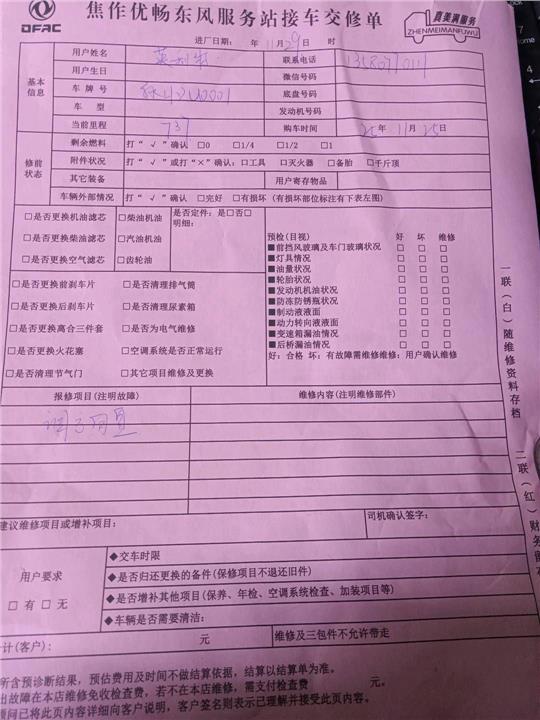 DFAC
焦作优畅东风服务站接车交修单
真美满服务
ZHENMEIMANFUWU
进厂日期： 年 11月29日 时
基本信息
用户姓名
联系电话
用户生日
微信号码
车 牌 号
底盘号码
车 型
发动机号码
当前里程 737
购车时间 25年 11月 25日
修前状态
剩余燃料 打“√”确认 □0 □1/4 □1/2 □1
附件状况 打“√”或打“×”确认：□工具 □灭火器 □备胎 □千斤顶
其它装备
用户寄存物品
车辆外部情况 打“√”确认 □完好 □有损坏（有损坏部位标注有下表左图）
□是否更换机油滤芯 □柴油机油 是否定件：是□否□
明细：
□是否更换柴油滤芯 □汽油机油
□是否更换空气滤芯 □齿轮油
预检(目视) 好 坏 维修
■前挡风玻璃及车门玻璃状况 □ □ □
■灯具情况 □ □ □
■油量状况 □ □ □
■轮胎状况 □ □ □
■发动机机油状况 □ □ □
■防冻防锈瓶状况 □ □ □
■制动液液面 □ □ □
■动力转向液液面 □ □ □
■变速箱漏油情况 □ □ □
■后桥漏油情况 □ □ □
好：合格 坏：有故障需维修维修：用户确认维修
□是否更换前刹车片 □是否清理排气筒
□是否更换后刹车片 □是否清理尿素箱
□是否更换离合三件套 □是否为电气维修
□是否更换火花塞 □空调系统是否正常运行
□是否清理节气门 □其它项目维修及更换
报修项目(注明故障)
维修内容(注明维修部件)
建议维修项目或增补项目：
司机确认签字：
用户要求
□ 有 □ 无
◆交车时限
◆是否归还更换的备件(保修项目不退还旧件)
◆是否增补其他项目(保养、年检、空调系统检查、加装项目等)
◆车辆是否需要清洁：
计(客户)： 元
维修及三包件不允许带走
所含预诊断结果，预估费用及时间不做结算依据，结算以结算单为准。
出故障在本店维修免收检查费，若不在本店维修，需支付检查费 元。
顾问已将此页内容详细向客户说明，客户签名则表示已理解并接受此页内容。
一联（白）随维修资料存档
二联（红）财务